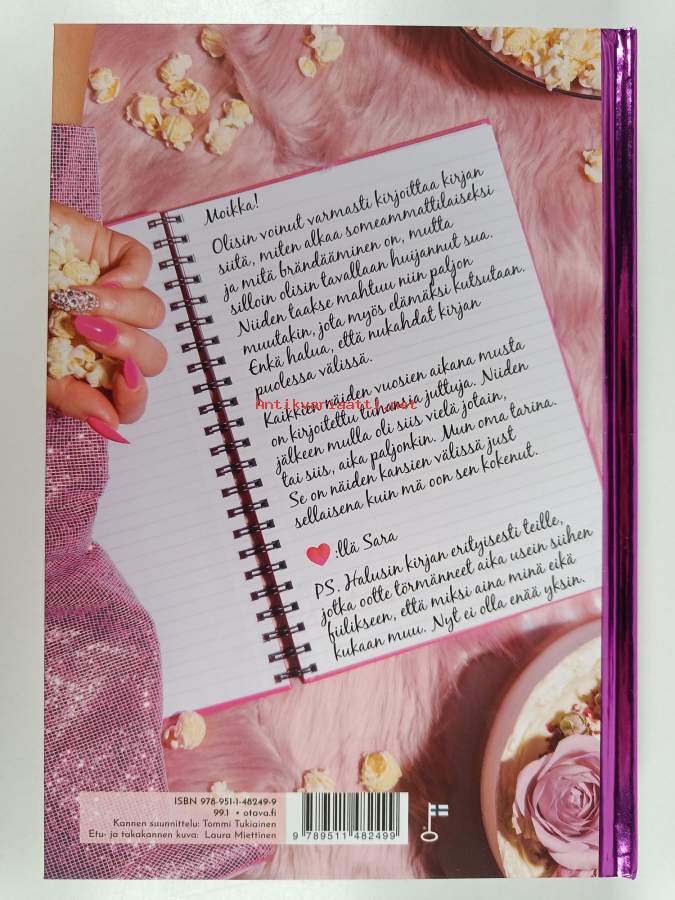 Moikka!
Olisin voinut varmasti kirjoittaa kirjan
siitä, miten alkaa someammattilaiseksi
ja mitä brändääminen on, mutta
silloin olisin tavallaan huijannut sua.
Niiden taakse mahtuu niin paljon
muutakin, jota myös elämäksi kutsutaan.
Enkä halua, että nukahdat kirjan
puolessa välissä.
Kaikkien näiden vuosien aikana musta
Antikvariaatti.net
on kirjoitettu tuhansia juttuja. Niiden
jälkeen mulla oli siis vielä jotain,
tai siis, aika paljonkin. Mun oma tarina.
Se on näiden kansien välissä just
sellaisena kuin mä oon sen kokenut.
:llä Sara
PS. Halusin kirjan erityisesti teille,
jotka ootte törmänneet aika usein siihen
fiilikseen, että miksi aina minä eikä
kukaan muu. Nyt ei olla enää yksin.
ISBN 978-951-1-48249-9
99.1 • otava.fi
Kannen suunnittelu: Tommi Tukiainen
Etu- ja takakannen kuva: Laura Miettinen
9 789511 482499